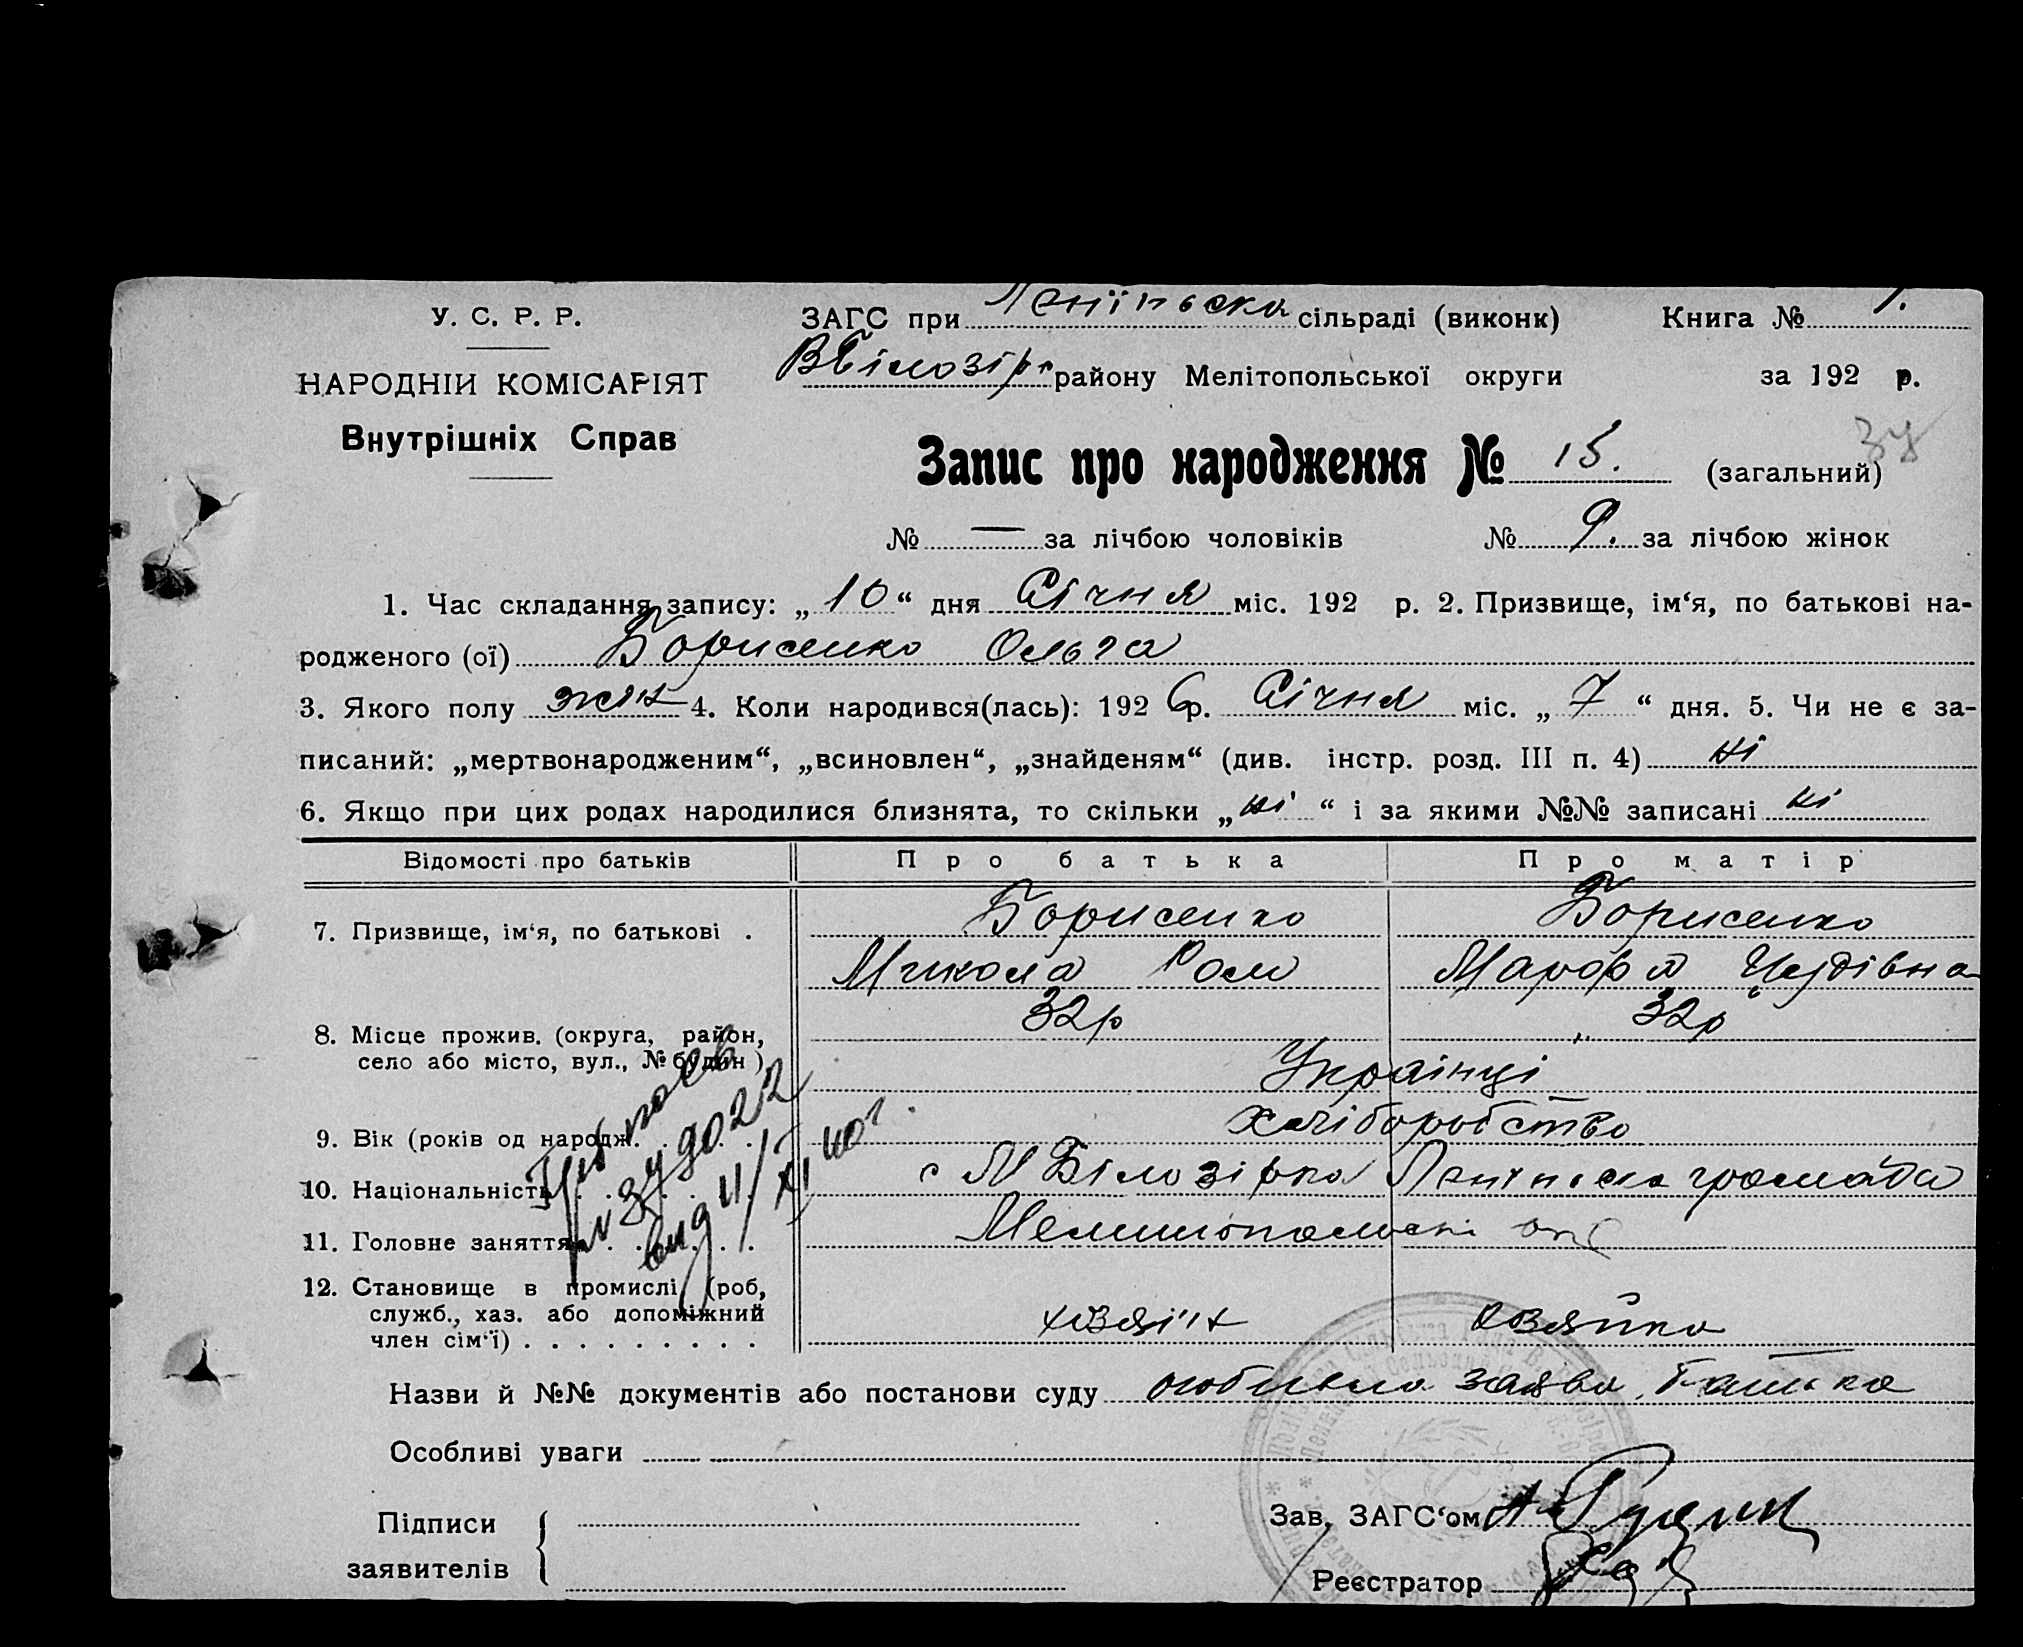 У. С. Р. Р.
НАРОДНІЙ КОМІСАРІЯТ
Внутрішніх Справ
ЗАГС при Лен сільраді (виконк) Книга № 1.
ВБілозір району Мелітопольської округи за 192 р.
Запис про народження № 15. (загальний)
№ — за лічбою чоловіків № 9. за лічбою жінок
1. Час складання запису: „ 10 “ дня Січня міс. 192 р. 2. Призвище, ім‘я, по батькові на-
родженого (ої) Борисенко Ольга
3. Якого полу жін 4. Коли народився(лась): 192 6 р. Січня міс. „ 7 “ дня. 5. Чи не є за-
писаний: „мертвонародженим“, „всиновлен“, „знайденям“ (див. інстр. розд. III п. 4) ні
6. Якщо при цих родах народилися близнята, то скільки „ ні “ і за якими №№ записані ні
Відомості про батьків Про батька Про матір
7. Призвище, ім‘я, по батькові . Борисенко Борисенко
Микола Ром Марфа
32р „ 32р
8. Місце прожив. (округа, район,
село або місто, вул., № будин )
Українці
9. Вік (років од народж. . . . . хліборобство
10. Національність . . . . . с М Білозірка громада
11. Головне заняття . . . . .
12. Становище в промислі (роб,
служб., хаз. або допоміжний
член сім‘ї) . . . . . . . . . хозяїн озяйка
Назви й №№ документів або постанови суду заява батька
Особливі уваги
Підписи
заявителів
Зав. ЗАГС‘ом
Реєстратор